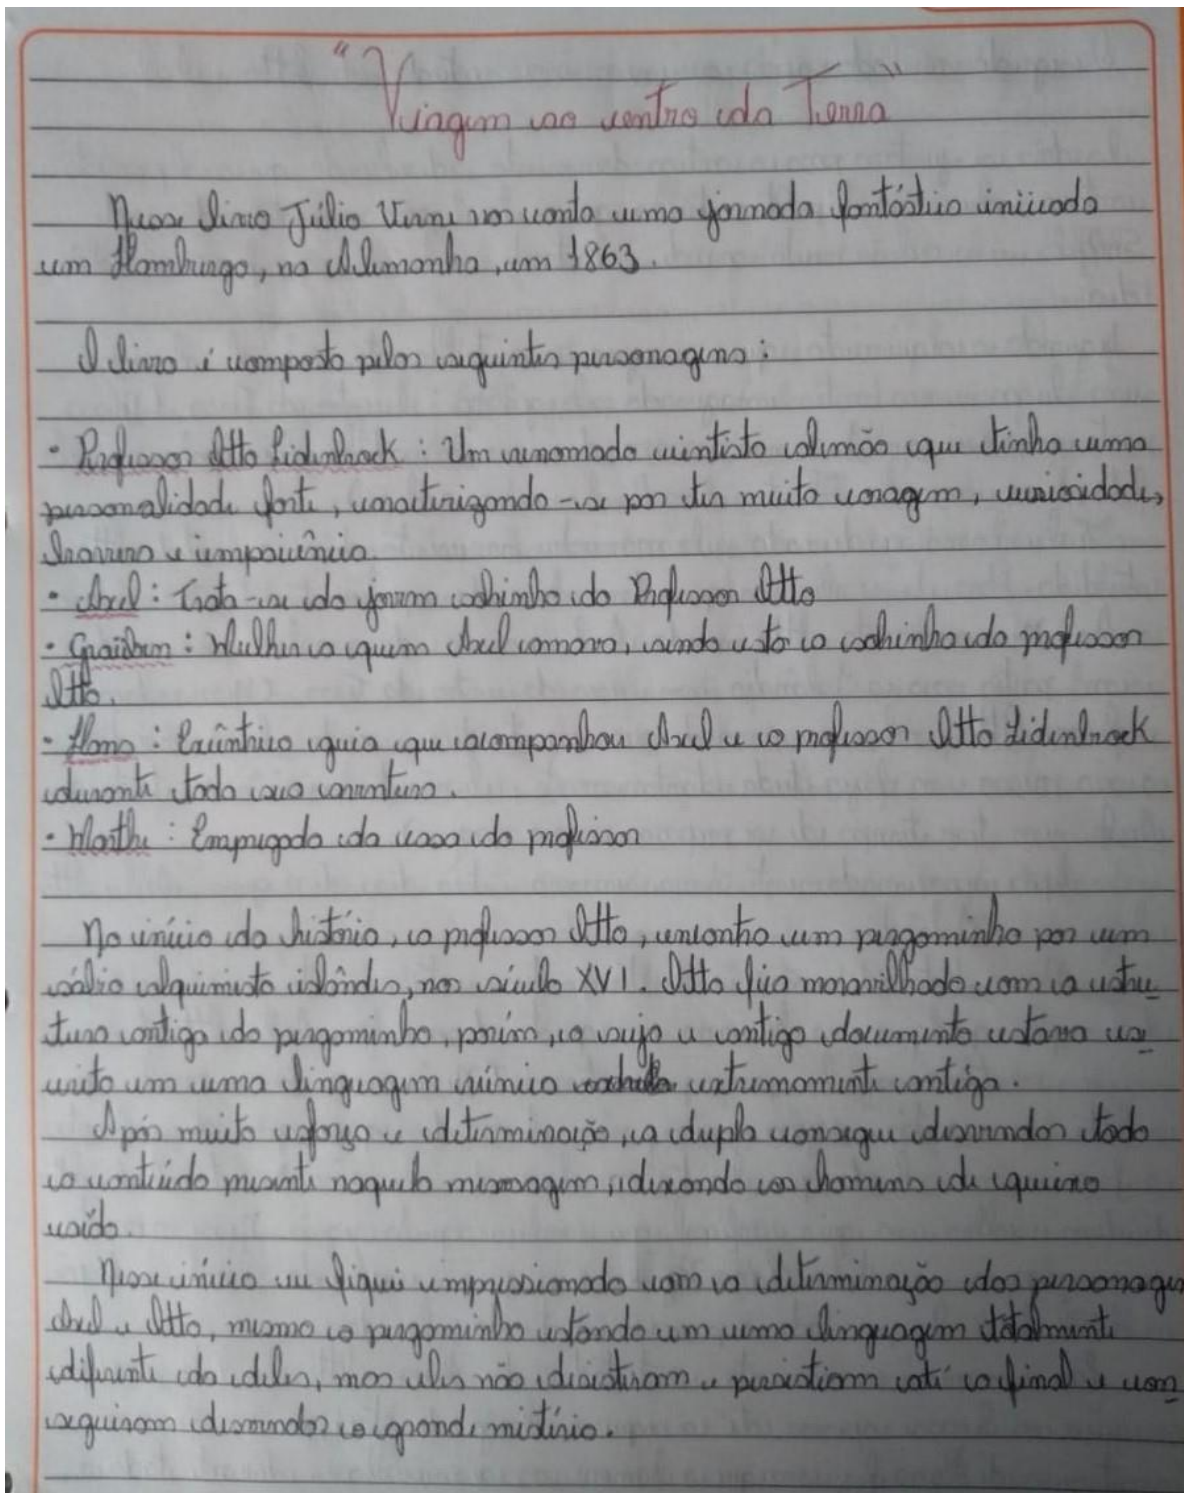 "Viagem ao centro da Terra"
Nesse livro Júlio Verne nos conta uma jornada fantástica iniciada
em Hamburgo, na Alemanha, em 1863.
O livro é composto pelos seguintes personagens:
· Professor Otto Lidenbrock: Um renomado cientista alemão que tinha uma
personalidade forte, caracterizando-se por ter muita coragem, curiosidade,
bravura e impaciência.
· Axel: Trata-se do jovem sobrinho do Professor Otto
· Graüben: Mulher a quem Axel amava, sendo esta a sobrinha do professor
Otto.
· Hans: Excêntrico guia que acompanhou Axel e o professor Otto Lidenbrock
durante toda sua aventura.
· Marthe: Empregada da casa do professor
No início da história, o professor Otto, encontra um pergaminho por um
sábio alquimista islândes, nos século XVI. Otto fica maravilhado com a estru_
tura antiga do pergaminho, porém, o sujo e antigo documento estava es_
crito em uma linguagem rúnica extremamente antiga.
Após muito esforço e determinação, a dupla consegue desvendar todo
o conteúdo presente naquela mensagem, deixando os homens de queixo
caído.
Nesse início eu fiquei impressionado com a determinação dos personagens
Axel e Otto, mesmo o pergaminho estando em uma linguagem totalmente
diferente da deles, mas eles não desistiram e persistiam até o final e con_
seguiram desvendar o grande mistério.